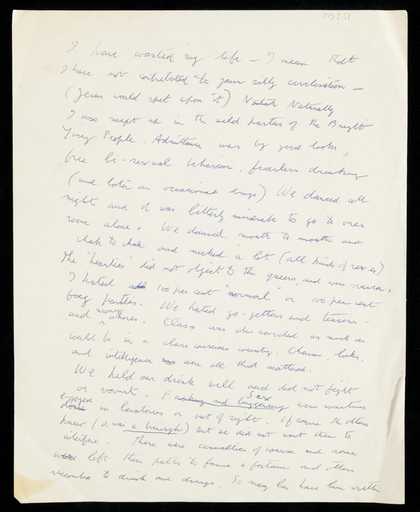 I have wasted my life – I mean that
I have not contributed to your silly civilisation –
(Jesus would spit upon it) Naturally
I was swept up in the wild parties of the Bright
Young People. Admittance was by good looks,
free bi-sexual behaviour, fearless drinking
(and later an occasional drug) We danced all
night and it was utterly miserable to go to ones
room alone. We danced mouth to mouth and
cheek to cheek and necked a lot (all kinds of sexes)
The 'hearties' did not object to the queers, and vice versa.
I hated 100 per cent 'normal' or 100 per cent
fag parties. We hated go-getters and teasers
and whores. Class was also discarded as much as
could be in a class conscious country. Charm, looks,
and intelligence were all that mattered.
We held our drink well and did not fight
or vomit. Sex was sometimes
enjoyed in lavatories or out of sight. Of course the others
knew (it was a triumph) but we did not want them to
interfere. There were casualties of course and some
left their paths to found a fortune and others
succumbed to drink and drugs. So many lies have been written